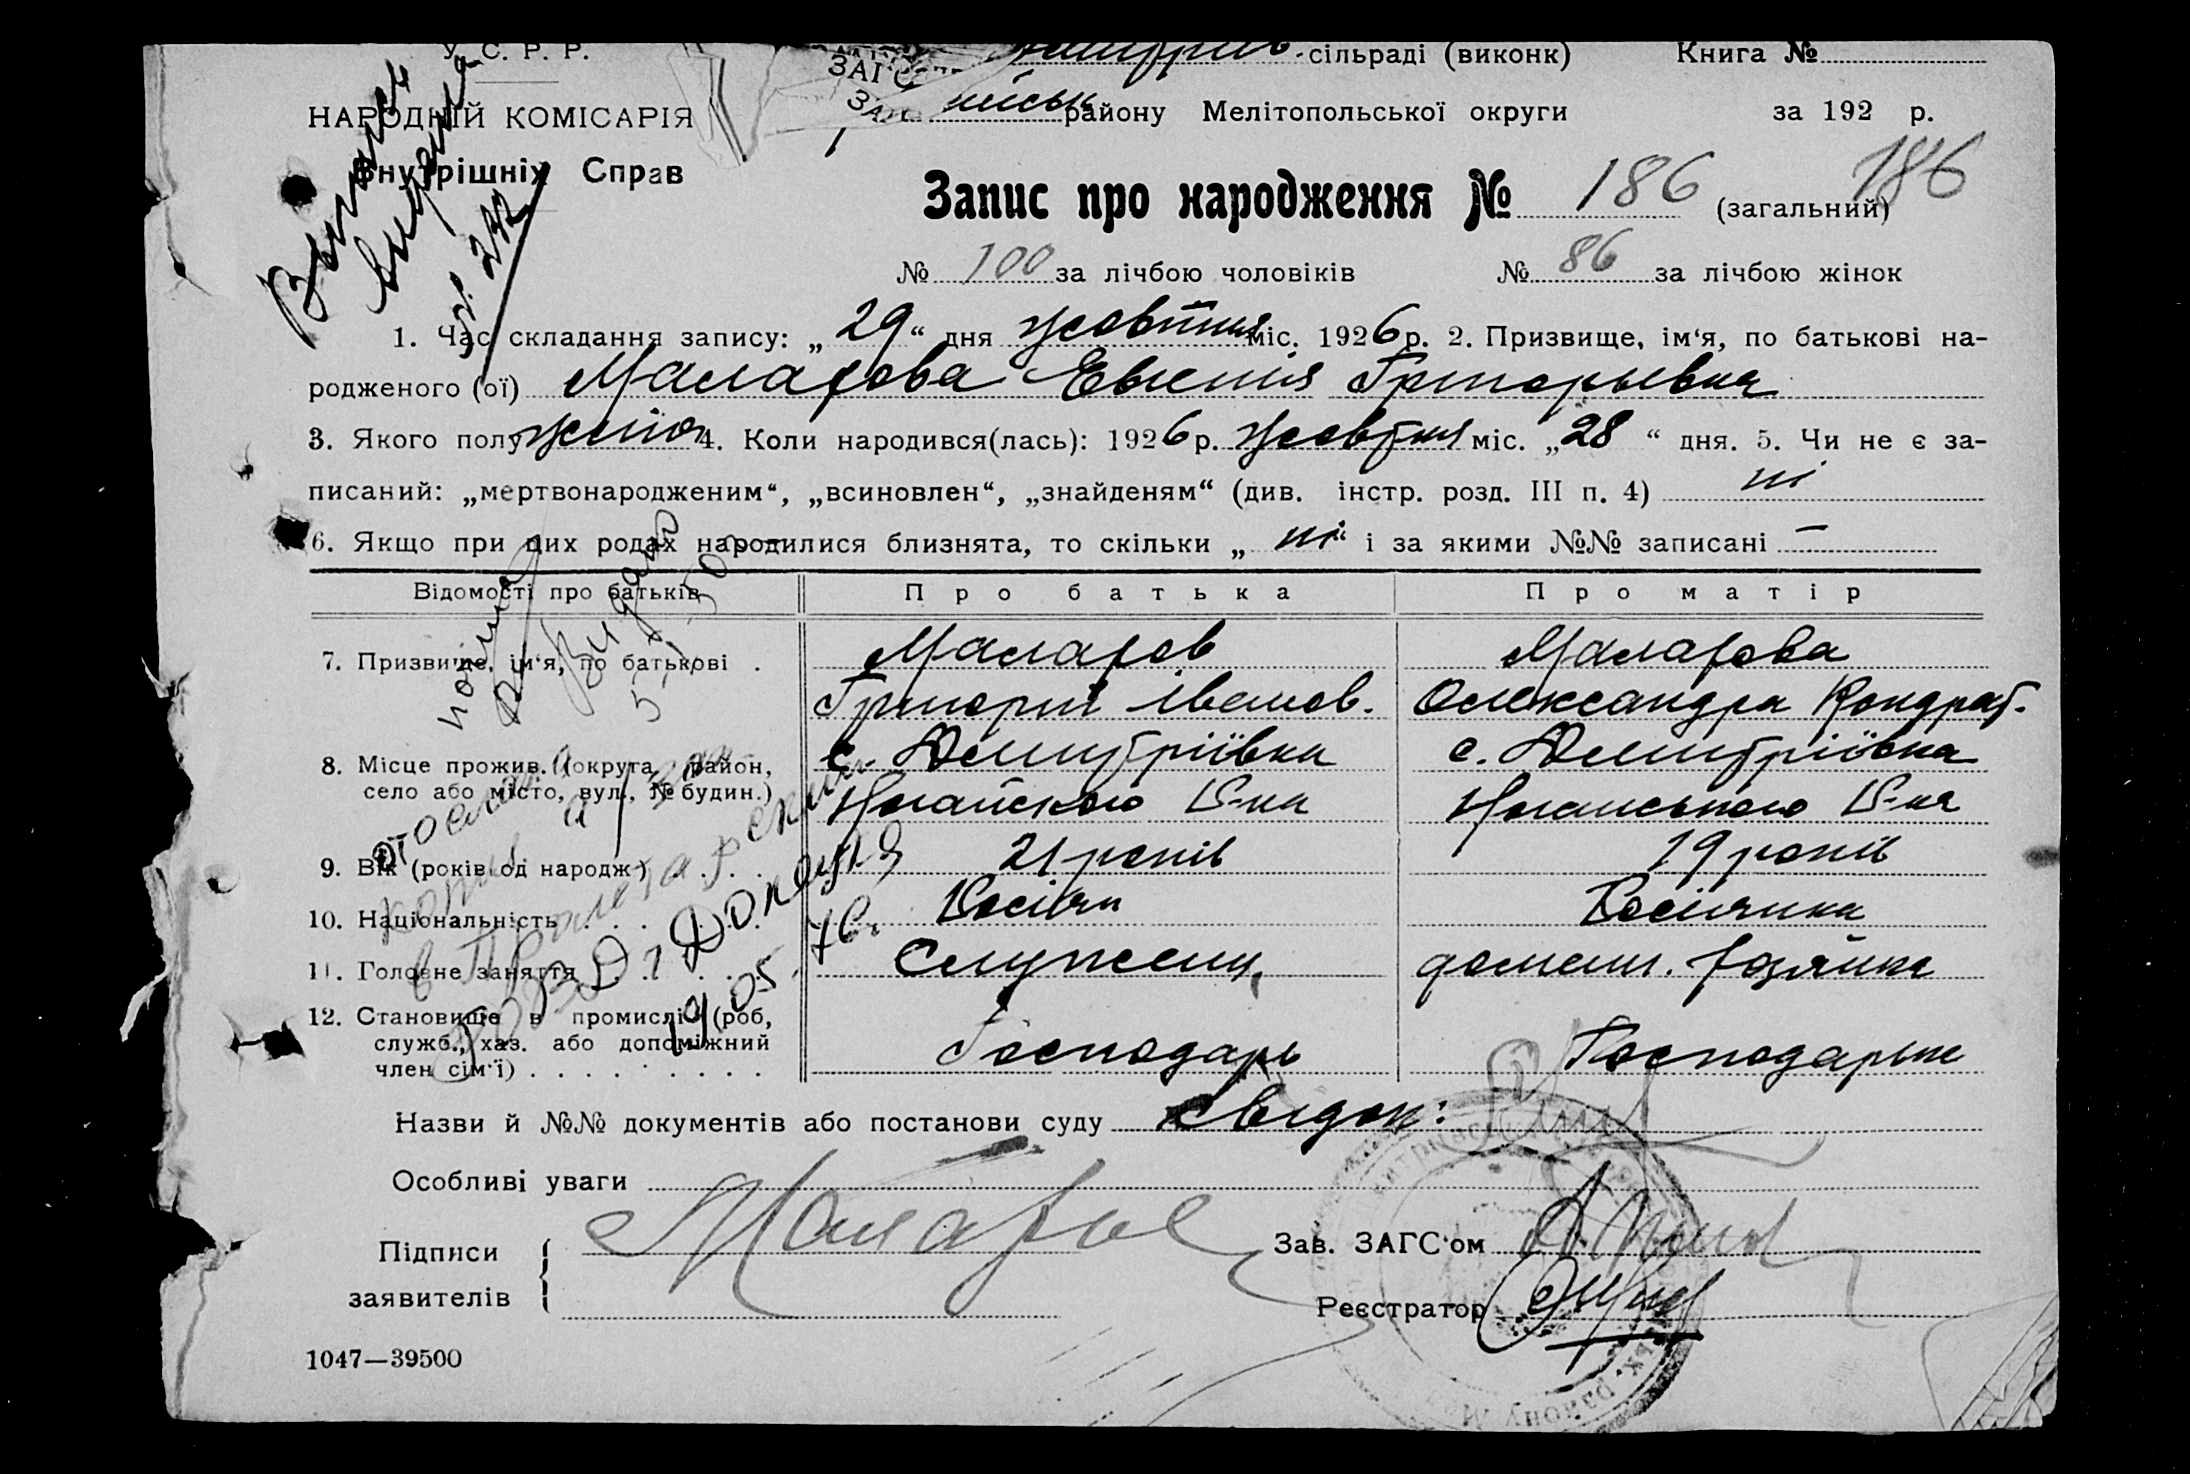 У. С. Р. Р.
НАРОДНІЙ КОМІСАРІЯ
Внутрішніх Справ
сільраді (виконк) Книга №
району Мелітопольської округи за 192 р.
Запис про народження № 186 (загальний) 186
№ 100 за лічбою чоловіків № 86 за лічбою жінок
1. Час складання запису: „ 29 “ дня жовтня міс. 1926 р. 2. Призвище, ім‘я, по батькові на-
родженого (ої) Малахова Евгенія Григорьевна
3. Якого полу жіно 4. Коли народився(лась): 1926 р. Жовтня міс. „ 28 “ дня. 5. Чи не є за-
писаний: „мертвонародженим“, „всиновлен“, „знайденям“ (див. інстр. розд. III п. 4) ні
6. Якщо при цих родах народилися близнята, то скільки „ ні “ і за якими №№ записані —
Відомості про батьків Про батька Про матір
7. Призвище, ім‘я, по батькові . Малахов Малахова
Григорій Іванов. Олександра Кондрат.
8. Місце прожив. (округа, район, с. Дмитріївка с. Дмитріївка
село або місто, вул., № будин.) Ногайского Р-на Ногайського Р-на
9. Вік (років од народж) 21 років 19 років
10. Національність Росіян Росіянка
11. Головне заняття Служещ. домаш. хозяйка
12. Становище в промислі (роб,
служб., хаз. або допоміжний Господарь Господарька
член сім‘ї)
Назви й №№ документів або постанови суду свідок:
Особливі уваги
Підписи Малахов Зав. ЗАГС‘ом
заявителів Реєстратор
1047—39500
Выпись
выдана
№ 242
копия
Видано
отослана
копия
в Пролетарский
РОВД г Донецка
19 05 76г